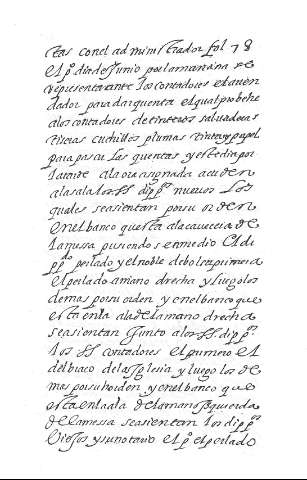 tas con el administrador fol 78
el pº dia de Junio por la manana se
representa ante los contadores el aren
dador para dar quenta el qual probehe
a los contadores de tinteros salvaderas
tixeras cuchillos plumas tinta y papel
para pasar las quentas y este dia por
la tarde a la ora asignada acuden
a la sala los ss dipp.os nuevos los
quales se asientan por su orden
en el banco questa a la cavecera de
la messa pusiendose en medio el di
pp.do perlado y el noble debolo la primera
el perlado a mano drecha y luego los
demas por su orden y en el banco que
esta en la ala de la mano drecha
se asientan junto a los ss dipp.os
los ss contadores el primero el
del braco de la Iglesia y luego los de
mas por su horden y en el banco que
esta en la ala de la mano yzquierda
de la messa se asientan los dipp.os
Viejos y su notario el pº el perlado